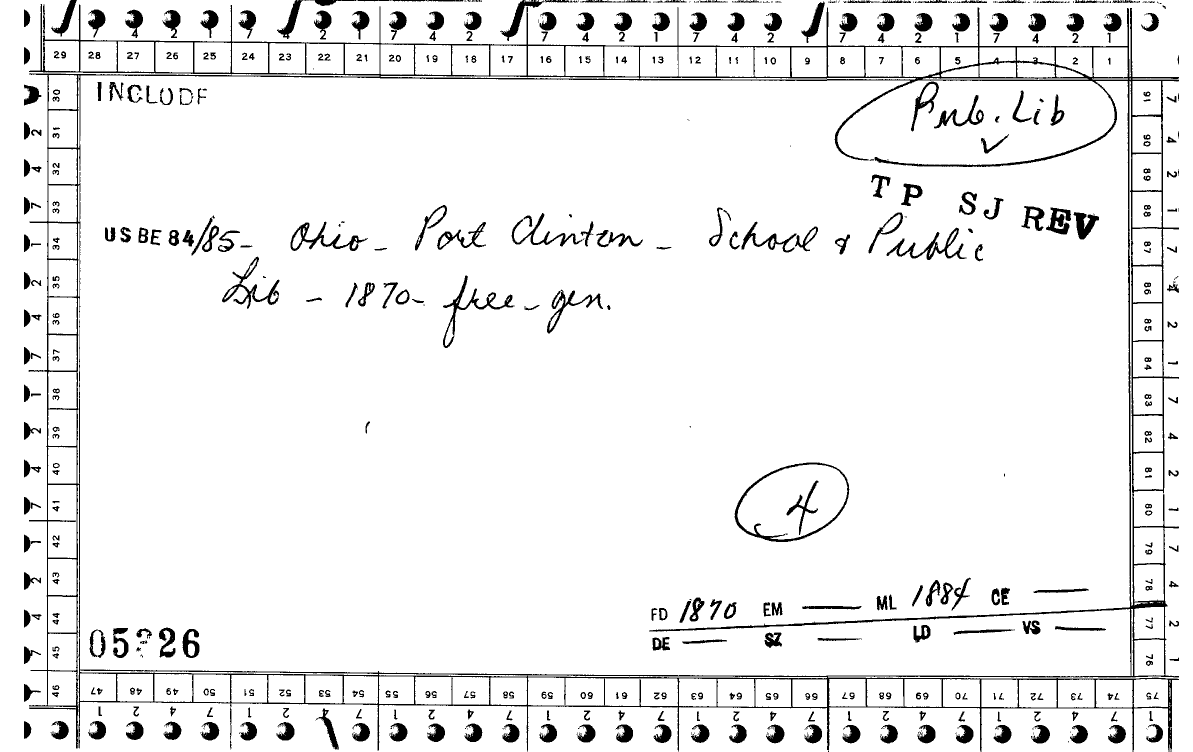 7 4 2 1 7 4 2 1 7 4 2 1 7 4 2 1 7 4 2 1 7 4 2 1 7 4 2 1
29 28 27 26 25 24 23 22 21 20 19 18 17 16 15 14 13 12 11 10 9 8 7 6 5 4 3 2 1
INCLUDE
Pub. Lib
TP SJ REV
US BE 84/85 - Ohio - Port Clinton - School & Public
Lib - 1870 - free - gen.
4
FD 1870 EM — ML 1884 CE —
DE — SZ — LD — VS —
05 26
30 31 32 33 34 35 36 37 38 39 40 41 42 43 44 45 46
91 90 89 88 87 86 85 84 83 82 81 80 79 78 77 76
47 48 49 50 51 52 53 54 55 56 57 58 59 60 61 62 63 64 65 66 67 68 69 70 71 72 73 74 75
1 2 4 7 1 2 4 7 1 2 4 7 1 2 4 7 1 2 4 7 1 2 4 7 1 2 4 7 1